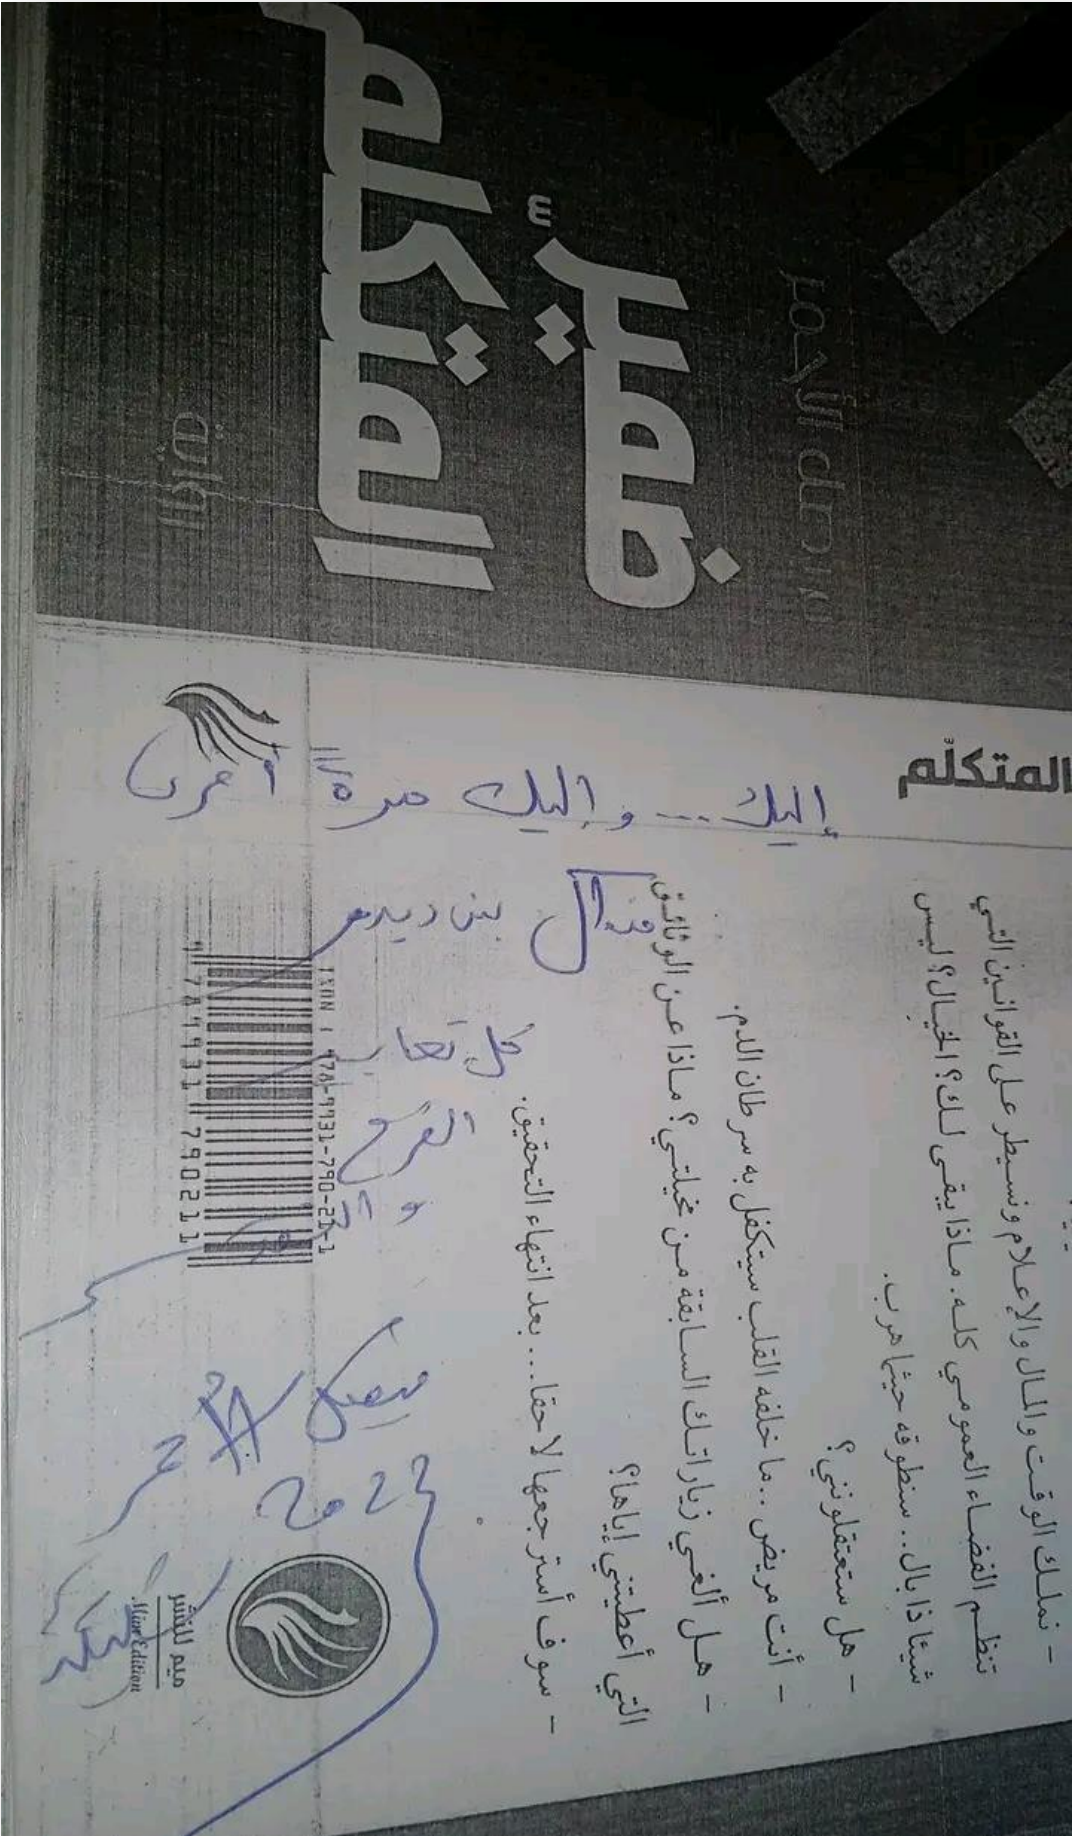 فيصل الأحمر
ضمير
المتكلم
المتكلّم
- نملك الوقت والمال والإعلام ونسيطر على القوانين التي
تنظم الفضاء العمومي كله. ماذا يبقى لك؟ الخيال؟ ليس
شيئا ذا بال.. سنطوقه حيثما هرب.
- هل ستعتقلونني؟
- أنت مريض.. ما خلفه القلب سيتكفل به سرطان الدم.
- هل ألغي زياراتك السابقة من مخيلتي؟ ماذا عن الوثائق
التي أعطيتني إياها؟
- سوف أسترجعها لاحقا... بعد انتهاء التحقيق.
إليك... وإليك مرة أخرى
بن ديدم
كل
الفرح
فيصل الأحمر
2023
ISBN : 978-9931-790-21-1
9 789931 790211
ميم للنشر
Mim Edition